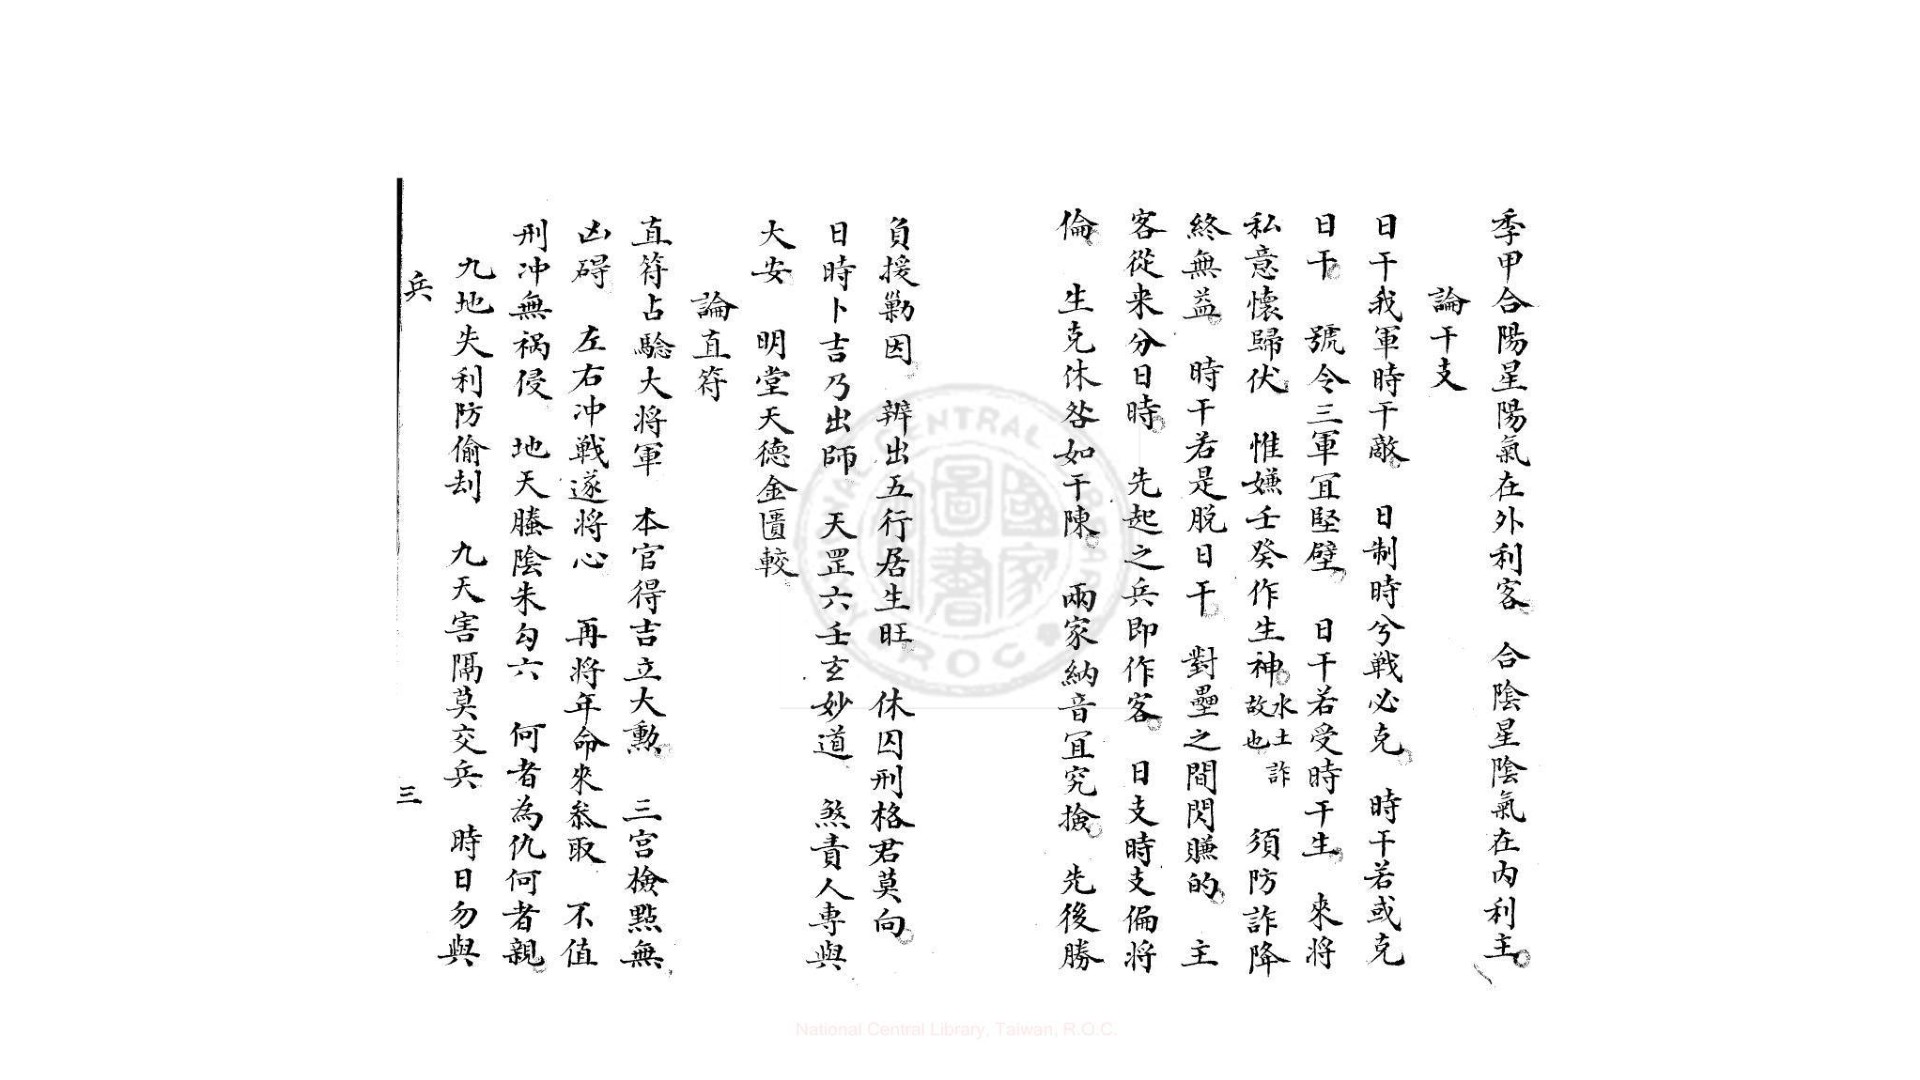 季甲合陽星陽氣在外利客 合陰星陰氣在內利主
論干支
日干我軍時干敵 日制時兮戰必克 時干若或克
日干 號令三軍宜堅壁 日干若受時干生 來將
私意懷歸伏 惟嫌壬癸作生神 水土詐故也 須防詐降
終無益 時干若是脫日干 對壘之間閃賺的 主
客從来分日時 先起之兵即作客 日支時支偏將
倫 生克休咎如干陳 兩家納音宜究撿 先後勝
負援勦因 辨出五行居生旺 休囚刑格君莫向
日時卜吉乃出師 天罡六壬玄妙道 煞責人專與
大安 明堂天德金匱較
論直符
直符占驗大將軍 本官得吉立大勳 三宮檢點無
凶碍 左右冲戰遂將心 再將年命來叅取 不值
刑冲無祸侵 地天螣陰朱勾六 何者為仇何者親
九地失利防偷刦 九天害隔莫交兵 時日勿與
兵 三
National Central Library, Taiwan, R.O.C.